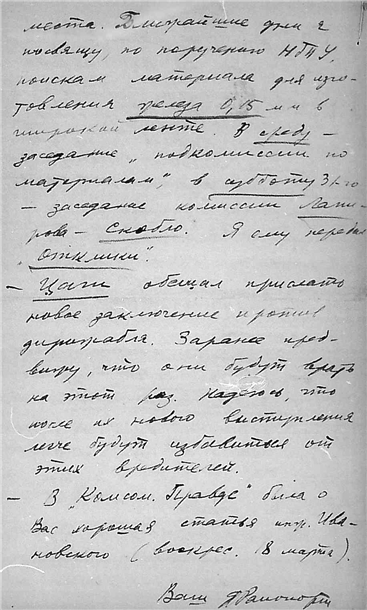 места. Ближайшие дни я
посвящу, по поручению НТУ,
поискам материала для изго-
товления железа 0,15 мм в
широкой ленте. В среду –
заседание "подкомиссии по
материалам", в субботу 31-го
– заседание комиссии Лапи-
рова-Скобло. Я ему передал
"Отклики".
– Цаги обещал прислать
новое заключение против
дирижабля. Заранее пред-
вижу, что они будут врать
на этот раз. Надеюсь, что
после их нового выступления
легче будет избавиться от
этих вредителей.
– В "Комсом. Правде" была о
Вас хорошая статья инр. Ива-
новского (воскрес. 18 марта).
Ваш Я Рапопорт